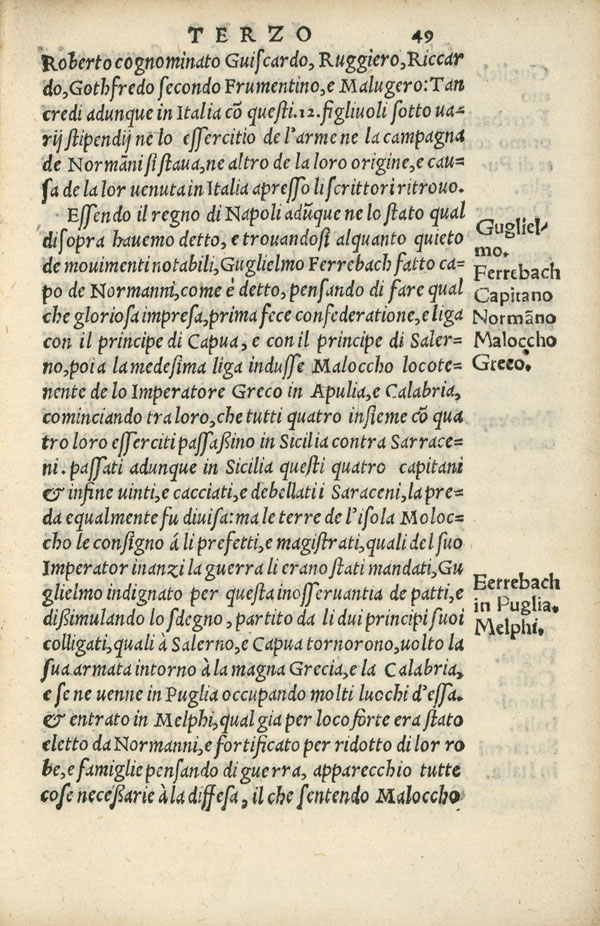 TERZO 49
Roberto cognominato Guiscardo, Ruggiero, Riccar
do, Gothfredo secondo Frumentino, e Malugero: Tan
credi adunque in Italia cõ questi .12. figliuoli sotto ua=
rij stipendij ne lo essercitio de l'arme ne la campagna
de Normãni si staua, ne altro de la loro origine, e cau=
sa de la lor uenuta in Italia apresso li scrittori ritrouo.
Essendo il regno di Napoli adũque ne lo stato qual
di sopra hauemo detto, e trouandosi alquanto quieto
de mouimenti notabili, Guglielmo Ferrebach fatto ca=
po de Normanni, come è detto, pensando di fare qual
che gloriosa impresa, prima fece confederatione, e liga
con il principe di Capua, e con il principe di Saler=
no, poi a la medesima liga indusse Maloccho locote=
nente de lo Imperatore Greco in Apulia, e Calabria,
cominciando tra loro, che tutti quatro insieme cõ qua
tro loro esserciti passaßino in Sicilia contra Sarrace=
ni. passati adunque in Sicilia questi quatro capitani
& infine uinti, e cacciati, e debellati i Saraceni, la pre=
da equalmente fu diuisa: ma le terre de l'isola Moloc=
cho le consigno á li prefetti, e magistrati, quali del suo
Imperator inanzi la guerra li erano stati mandati, Gu
glielmo indignato per questa inosseruantia de patti, e
dißimulando lo sdegno, partito da li dui principi suoi
colligati, quali à Salerno, e Capua tornorono, uolto la
sua armata intorno à la magna Grecia, e la Calabria,
e se ne uenne in Puglia occupando molti luochi d'essa.
& entrato in Melphi, qual gia per loco forte era stato
eletto da Normanni, e fortificato per ridotto di lor ro
be, e famiglie pensando di guerra, apparecchio tutte
cose neceßarie à la diffesa, il che sentendo Maloccho
Gugliel-
mo.
Ferrebach
Capitano
Normãno
Maloccho
Greco.
Eerrebach
in Puglia.
Melphi.